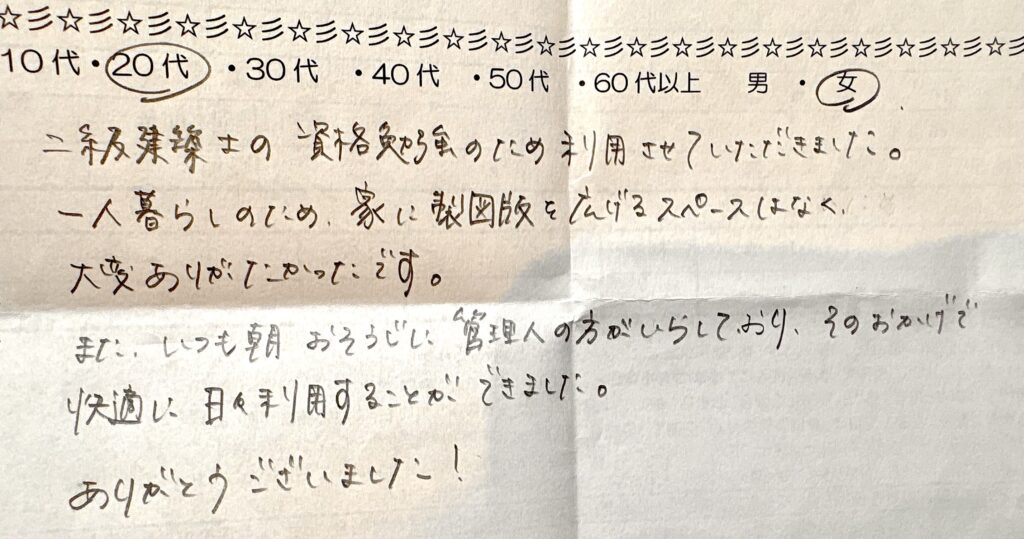 ☆彡☆彡☆彡☆彡☆彡☆彡☆彡☆彡☆彡☆彡☆彡☆彡☆彡☆彡☆彡☆彡☆彡☆彡☆彡
10代・20代・30代・40代・50代・60代以上 男・女
二級建築士の資格勉強のため利用させていただきました。
一人暮らしのため、家に製図版を広げるスペースはなく、
大変ありがたかったです。
また、いつも朝おそうじに管理人の方がいらしており、そのおかげで
快適に日々利用することができました。
ありがとうございました!